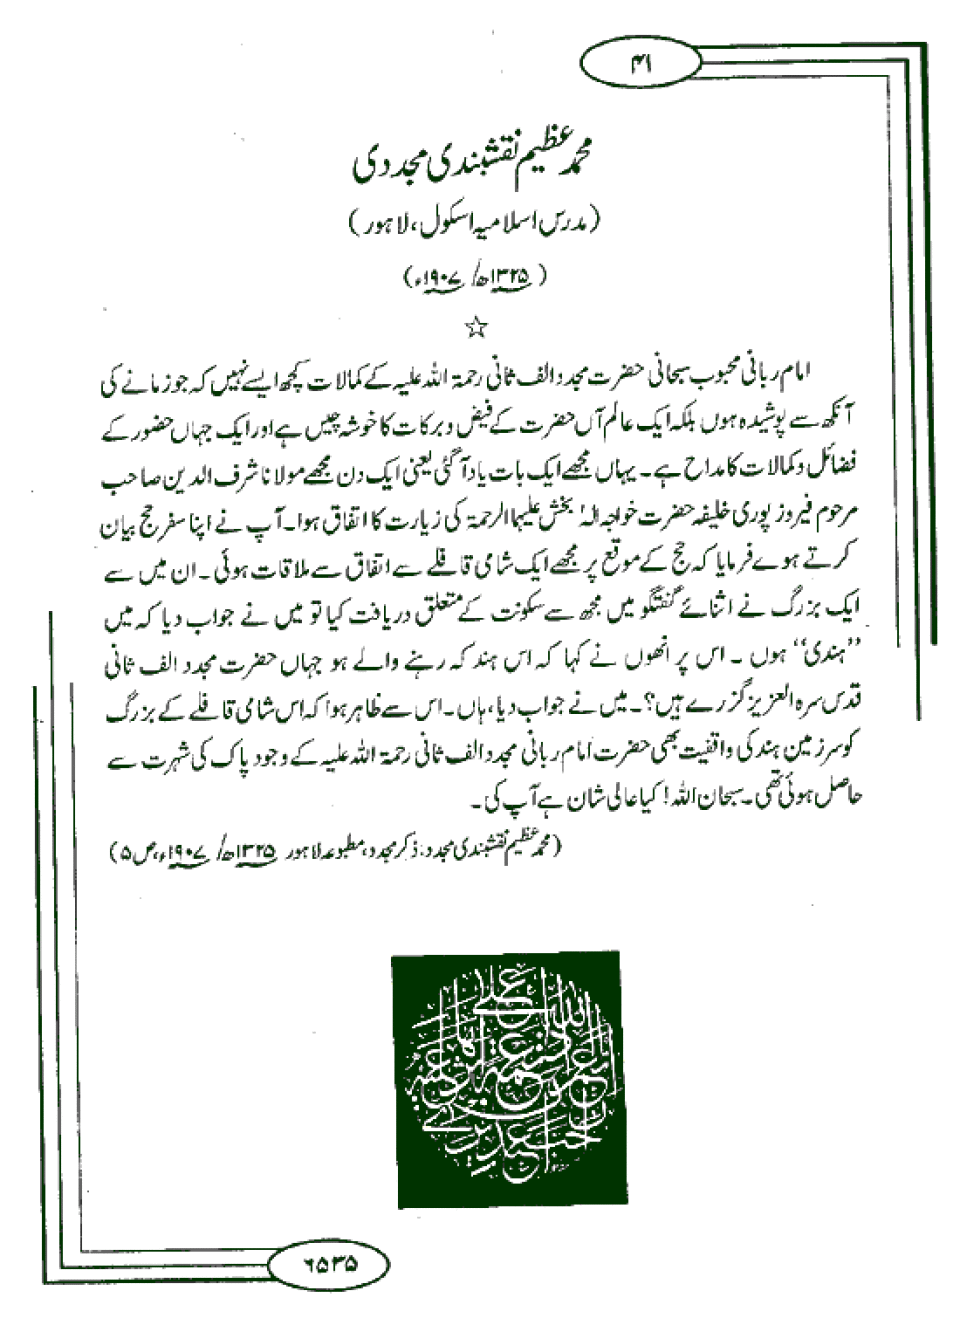 ۴۱
محمد عظیم نقشبندی مجددی
(مدرس اسلامیہ اسکول، لاہور)
(۱۳۲۵ھ/ ۱۹۰۷ء)
☆
امام ربانی محبوب سبحانی حضرت مجدد الف ثانی رحمۃ اللہ علیہ کے کمالات کچھ ایسے نہیں کہ جو زمانے کی
آنکھ سے پوشیدہ ہوں بلکہ ایک عالم آں حضرت کے فیض و برکات کا خوشہ چیں ہے اور ایک جہاں حضور کے
فضائل و کمالات کا مداح ہے۔ یہاں مجھے ایک بات یاد آگئی یعنی ایک دن مجھے مولانا شرف الدین صاحب
مرحوم فیروز پوری خلیفہ حضرت خواجہ الہٰ بخش علیہا الرحمۃ کی زیارت کا اتفاق ہوا۔ آپ نے اپنا سفر حج بیان
کرتے ہوے فرمایا کہ حج کے موقع پر مجھے ایک شامی قافلے سے اتفاق سے ملاقات ہوئی۔ ان میں سے
ایک بزرگ نے اثنائے گفتگو میں مجھ سے سکونت کے متعلق دریافت کیا تو میں نے جواب دیا کہ میں
”ہندی“ ہوں ۔ اس پر انھوں نے کہا کہ اس ہند کہ رہنے والے ہو جہاں حضرت مجدد الف ثانی
قدس سرہ العزیز گزرے ہیں؟۔ میں نے جواب دیا، ہاں۔ اس سے ظاہر ہوا کہ اس شامی قافلے کے بزرگ
کو سرزمین ہند کی واقفیت بھی حضرت امام ربانی مجدد الف ثانی رحمۃ اللہ علیہ کے وجود پاک کی شہرت سے
حاصل ہوئی تھی۔ سبحان اللہ! کیا عالی شان ہے آپ کی۔
(محمد عظیم نقشبندی مجدد، ذکر مجدد، مطبوعہ لاہور ۱۳۲۵ھ/ ۱۹۰۷ء، ص ۵)
۶۵۳۵